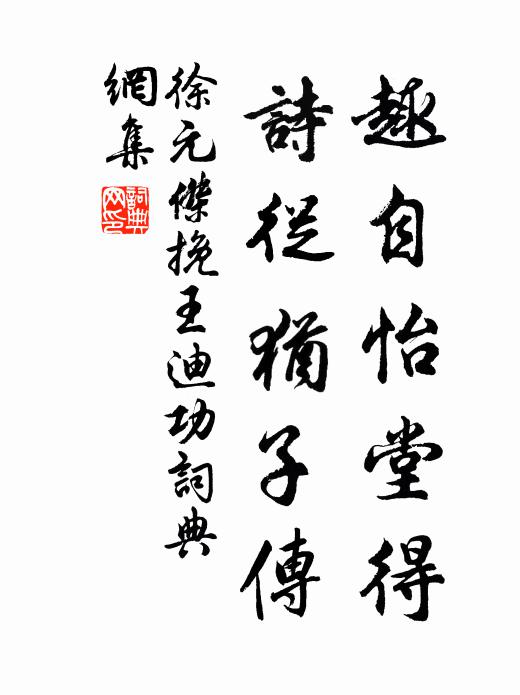 趣自怡堂得
詩從猶子傳
徐元傑挽王迪功詞典
網集
詞典網印